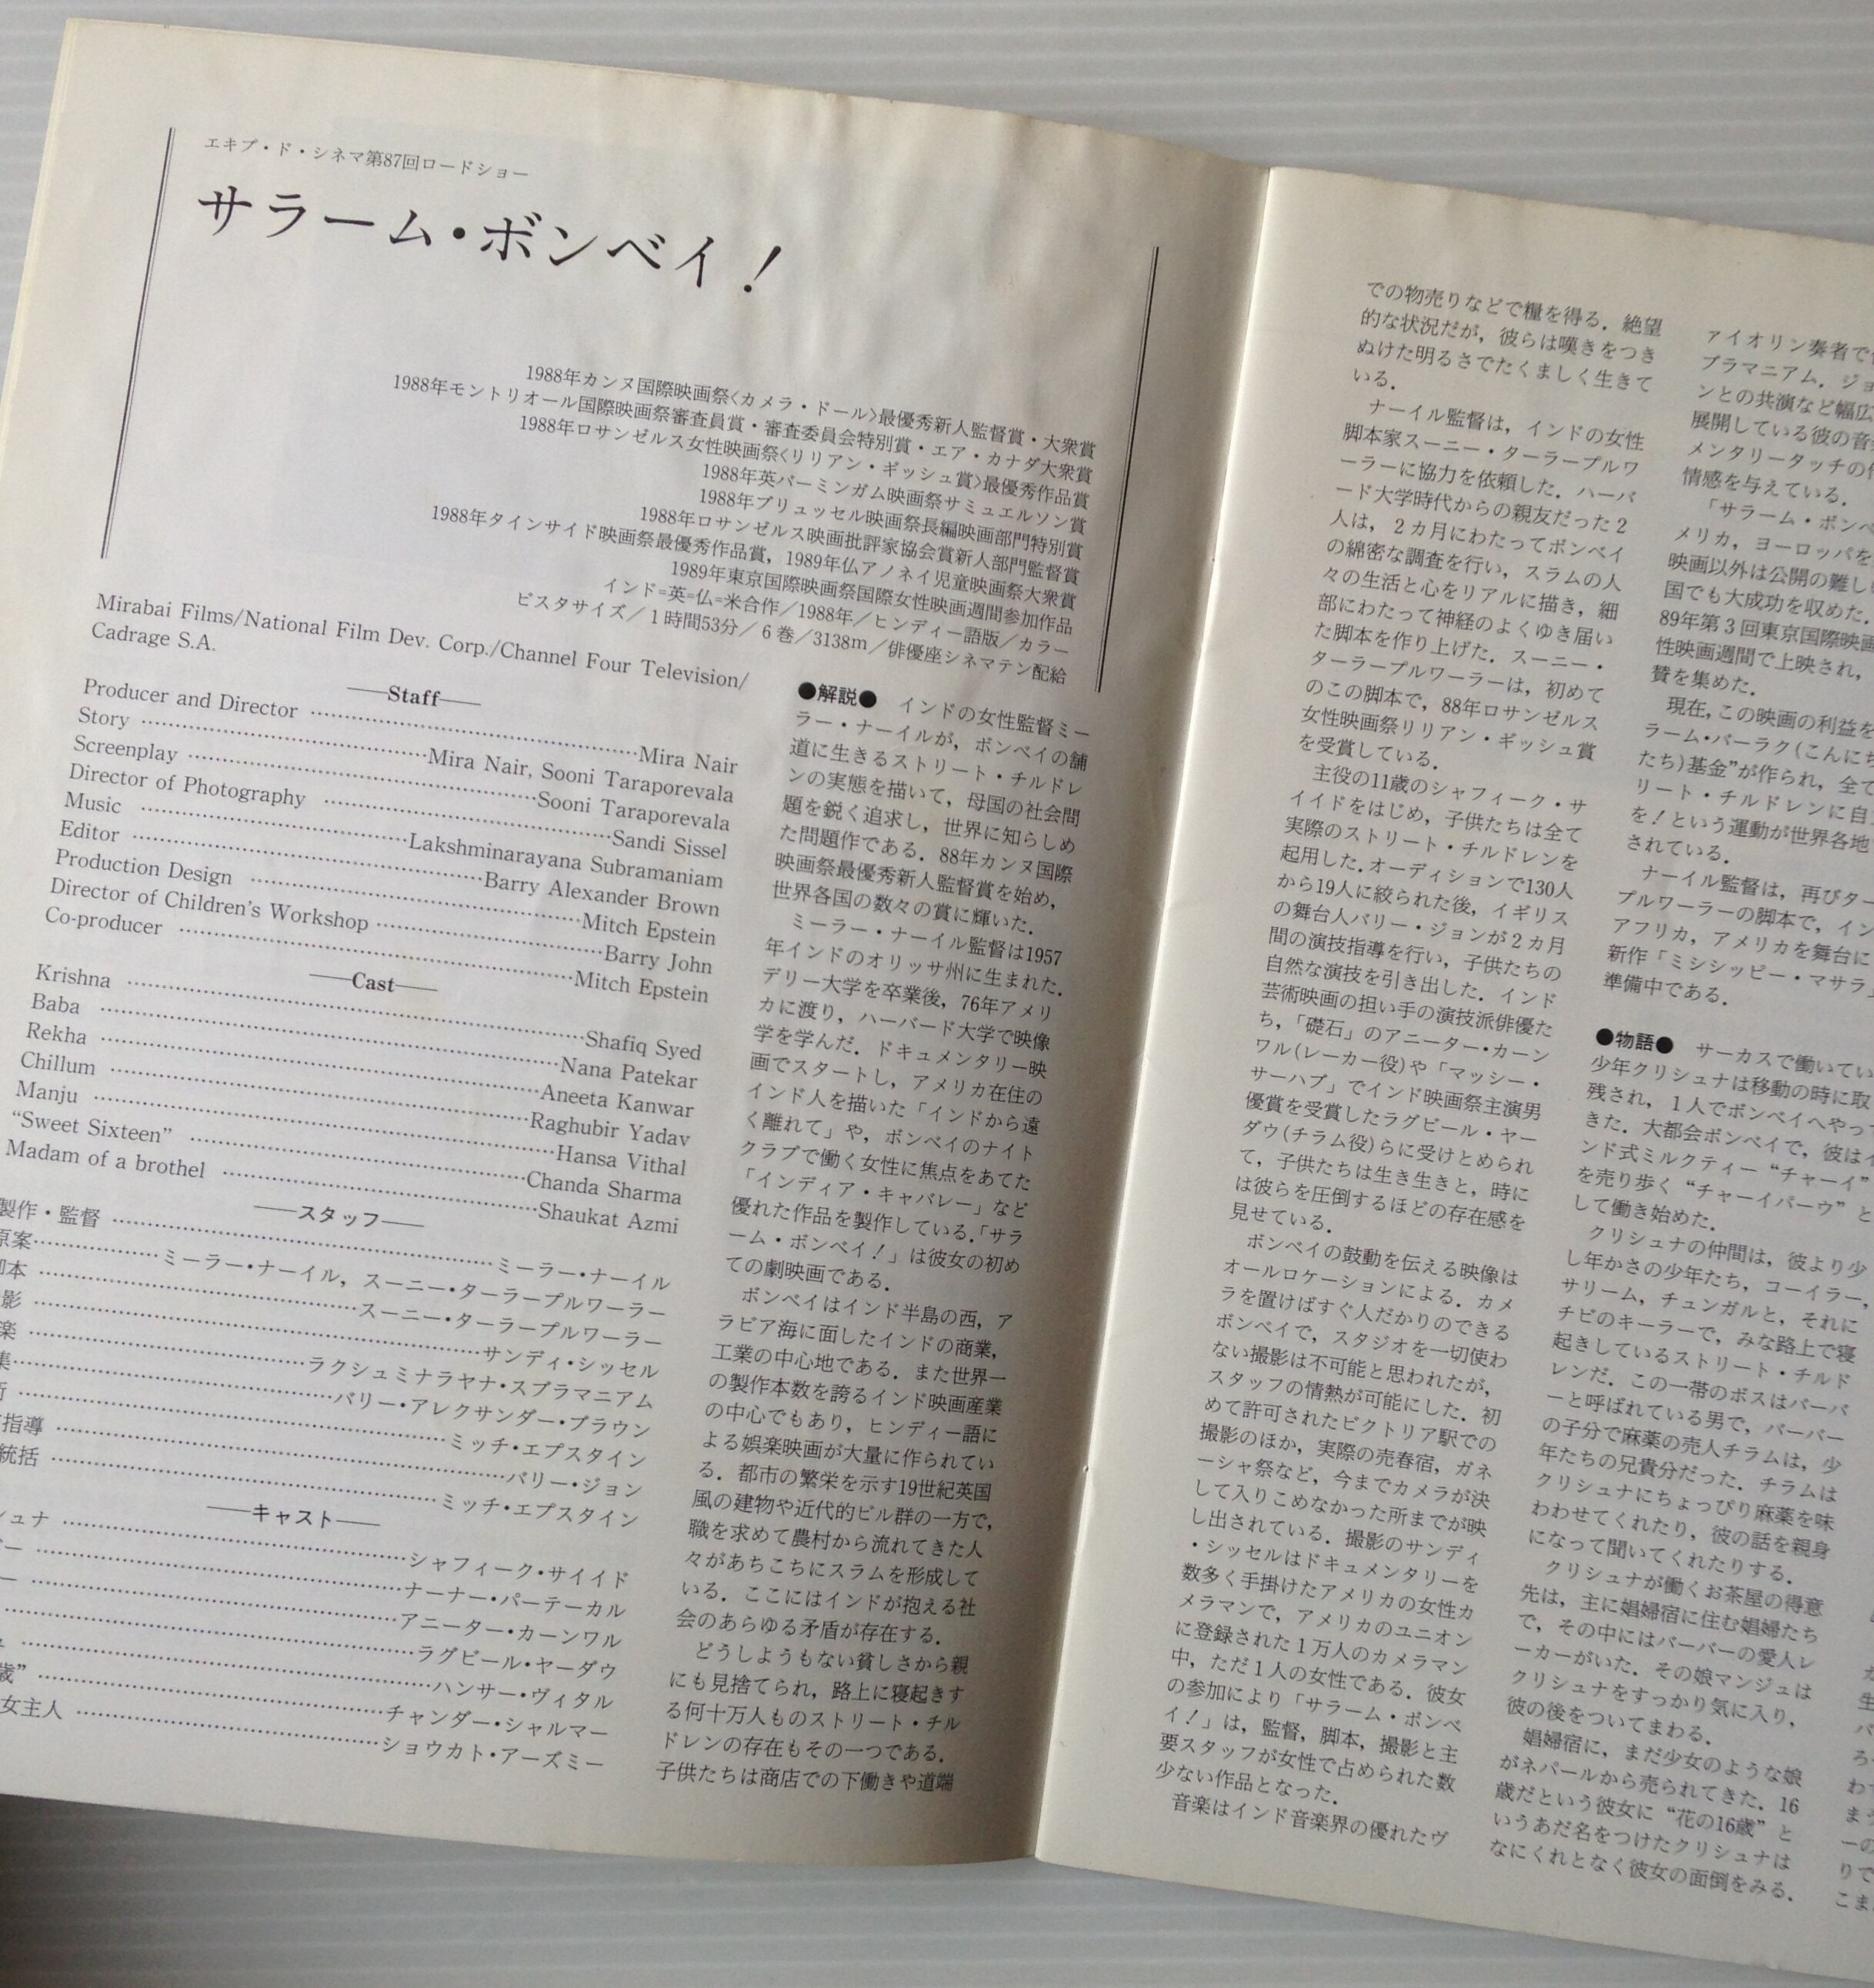 エキプ・ド・シネマ第87回ロードショー
サラーム・ボンベイ！
1988年カンヌ国際映画祭〈カメラ・ドール〉最優秀新人監督賞・大衆賞
1988年モントリオール国際映画祭審査員賞・審査委員会特別賞・エア・カナダ大衆賞
1988年ロサンゼルス女性映画祭〈リリアン・ギッシュ賞〉最優秀作品賞
1988年英バーミンガム映画祭サミュエルソン賞
1988年ブリュッセル映画祭長編映画部門特別賞
1988年ロサンゼルス映画批評家協会賞新人部門監督賞
1988年タインサイド映画祭最優秀作品賞，1989年仏アノネイ児童映画祭大衆賞
1989年東京国際映画祭国際女性映画週間参加作品
インド=英=仏=米合作／1988年／ヒンディー語版／カラー
ビスタサイズ／１時間53分／６巻／3138m／俳優座シネマテン配給
Mirabai Films/National Film Dev. Corp./Channel Four Television/
Cadrage S.A.
——Staff——
Producer and Director ……………………………Mira Nair
Story ……………………………Mira Nair, Sooni Taraporevala
Screenplay ……………………………Sooni Taraporevala
Director of Photography ……………………………Sandi Sissel
Music ……………………………Lakshminarayana Subramaniam
Editor ……………………………Barry Alexander Brown
Production Design ……………………………Mitch Epstein
Director of Children's Workshop ……………………Barry John
Co-producer ……………………………Mitch Epstein
——Cast——
Krishna ……………………………Shafiq Syed
Baba ……………………………Nana Patekar
Rekha ……………………………Aneeta Kanwar
Chillum ……………………………Raghubir Yadav
Manju ……………………………Hansa Vithal
“Sweet Sixteen” ……………………………Chanda Sharma
Madam of a brothel ……………………………Shaukat Azmi
——スタッフ——
製作・監督 ……………………………ミーラー・ナーイル
原案……………ミーラー・ナーイル，スーニー・ターラープルワーラー
脚本 ……………………………スーニー・ターラープルワーラー
影 ……………………………サンディ・シッセル
楽 ……………………………ラクシュミナラヤナ・スブラマニアム
集……………………………バリー・アレクサンダー・ブラウン
……………………………ミッチ・エプスタイン
指導 ……………………………バリー・ジョン
統括 ……………………………ミッチ・エプスタイン
——キャスト——
シュナ ……………………………シャフィーク・サイイド
ー ……………………………ナーナー・パーテーカル
ー ……………………………アニーター・カーンワル
……………………………ラグビール・ヤーダウ
……………………………ハンサー・ヴィタル
歳” ……………………………チャンダー・シャルマー
女主人 ……………………………ショウカト・アーズミー
●解説●　インドの女性監督ミー
ラー・ナーイルが，ボンベイの舗
道に生きるストリート・チルドレ
ンの実態を描いて，母国の社会問
題を鋭く追求し，世界に知らしめ
た問題作である．88年カンヌ国際
映画祭最優秀新人監督賞を始め，
世界各国の数々の賞に輝いた．
ミーラー・ナーイル監督は1957
年インドのオリッサ州に生まれた．
デリー大学を卒業後，76年アメリ
カに渡り，ハーバード大学で映像
学を学んだ．ドキュメンタリー映
画でスタートし，アメリカ在住の
インド人を描いた「インドから遠
く離れて」や，ボンベイのナイト
クラブで働く女性に焦点をあてた
「インディア・キャバレー」など
優れた作品を製作している．「サラ
ーム・ボンベイ！」は彼女の初め
ての劇映画である．
ボンベイはインド半島の西，ア
ラビア海に面したインドの商業，
工業の中心地である．また世界一
の製作本数を誇るインド映画産業
の中心でもあり，ヒンディー語に
よる娯楽映画が大量に作られてい
る．都市の繁栄を示す19世紀英国
風の建物や近代的ビル群の一方で，
職を求めて農村から流れてきた人
々があちこちにスラムを形成して
いる．ここにはインドが抱える社
会のあらゆる矛盾が存在する．
どうしようもない貧しさから親
にも見捨てられ，路上に寝起きす
る何十万人ものストリート・チル
ドレンの存在もその一つである．
子供たちは商店での下働きや道端
での物売りなどで糧を得る．絶望
的な状況だが，彼らは嘆きをつき
ぬけた明るさでたくましく生きて
いる．
ナーイル監督は，インドの女性
脚本家スーニー・ターラープルワ
ーラーに協力を依頼した．ハーバ
ード大学時代からの親友だった２
人は，２カ月にわたってボンベイ
の綿密な調査を行い，スラムの人
々の生活と心をリアルに描き，細
部にわたって神経のよくゆき届い
た脚本を作り上げた．スーニー・
ターラープルワーラーは，初めて
のこの脚本で，88年ロサンゼルス
女性映画祭リリアン・ギッシュ賞
を受賞している．
主役の11歳のシャフィーク・サ
イイドをはじめ，子供たちは全て
実際のストリート・チルドレンを
起用した．オーディションで130人
から19人に絞られた後，イギリス
の舞台人バリー・ジョンが２カ月
間の演技指導を行い，子供たちの
自然な演技を引き出した．インド
芸術映画の担い手の演技派俳優た
ち，「礎石」のアニーター・カーン
ワル(レーカー役)や「マッシー・
サーハブ」でインド映画祭主演男
優賞を受賞したラグビール・ヤー
ダウ(チラム役)らに受けとめられ
て，子供たちは生き生きと，時に
は彼らを圧倒するほどの存在感を
見せている．
ボンベイの鼓動を伝える映像は
オールロケーションによる．カメ
ラを置けばすぐ人だかりのできる
ボンベイで，スタジオを一切使わ
ない撮影は不可能と思われたが，
スタッフの情熱が可能にした．初
めて許可されたビクトリア駅での
撮影のほか，実際の売春宿，ガネ
ーシャ祭など，今までカメラが決
して入りこめなかった所までが映
し出されている．撮影のサンディ
・シッセルはドキュメンタリーを
数多く手掛けたアメリカの女性カ
メラマンで，アメリカのユニオン
に登録された１万人のカメラマン
中，ただ１人の女性である．彼女
の参加により「サラーム・ボンベ
イ！」は，監督，脚本，撮影と主
要スタッフが女性で占められた数
少ない作品となった．
音楽はインド音楽界の優れたヴ
ァイオリン奏者で
ブラマニアム．ジョ
ンとの共演など幅広
展開している彼の音
メンタリータッチの
情感を与えている．
「サラーム・ボンベ
メリカ，ヨーロッパを
映画以外は公開の難し
国でも大成功を収めた．
89年第３回東京国際映画
性映画週間で上映され，
賛を集めた．
現在，この映画の利益を
ラーム・バーラク(こんにち
たち)基金”が作られ，全て
リート・チルドレンに自
を！という運動が世界各地
されている．
ナーイル監督は，再びター
プルワーラーの脚本で，イン
アフリカ，アメリカを舞台に
新作「ミシシッピー・マサラ」
準備中である．
●物語●　サーカスで働いてい
少年クリシュナは移動の時に取
残され，１人でボンベイへやって
きた．大都会ボンベイで，彼はイ
ンド式ミルクティー“チャーイ”
を売り歩く“チャーイパーウ”と
して働き始めた．
クリシュナの仲間は，彼より少
し年かさの少年たち，コーイラー，
サリーム，チュンガルと，それに
チビのキーラーで，みな路上で寝
起きしているストリート・チルド
レンだ．この一帯のボスはバーバ
ーと呼ばれている男で，バーバー
の子分で麻薬の売人チラムは，少
年たちの兄貴分だった．チラムは
クリシュナにちょっぴり麻薬を味
わわせてくれたり，彼の話を親身
になって聞いてくれたりする．
クリシュナが働くお茶屋の得意
先は，主に娼婦宿に住む娼婦たち
で，その中にはバーバーの愛人レ
ーカーがいた．その娘マンジュは
クリシュナをすっかり気に入り，
彼の後をついてまわる．
娼婦宿に，まだ少女のような娘
がネパールから売られてきた．16
歳だという彼女に“花の16歳”と
いうあだ名をつけたクリシュナは
なにくれとなく彼女の面倒をみる．